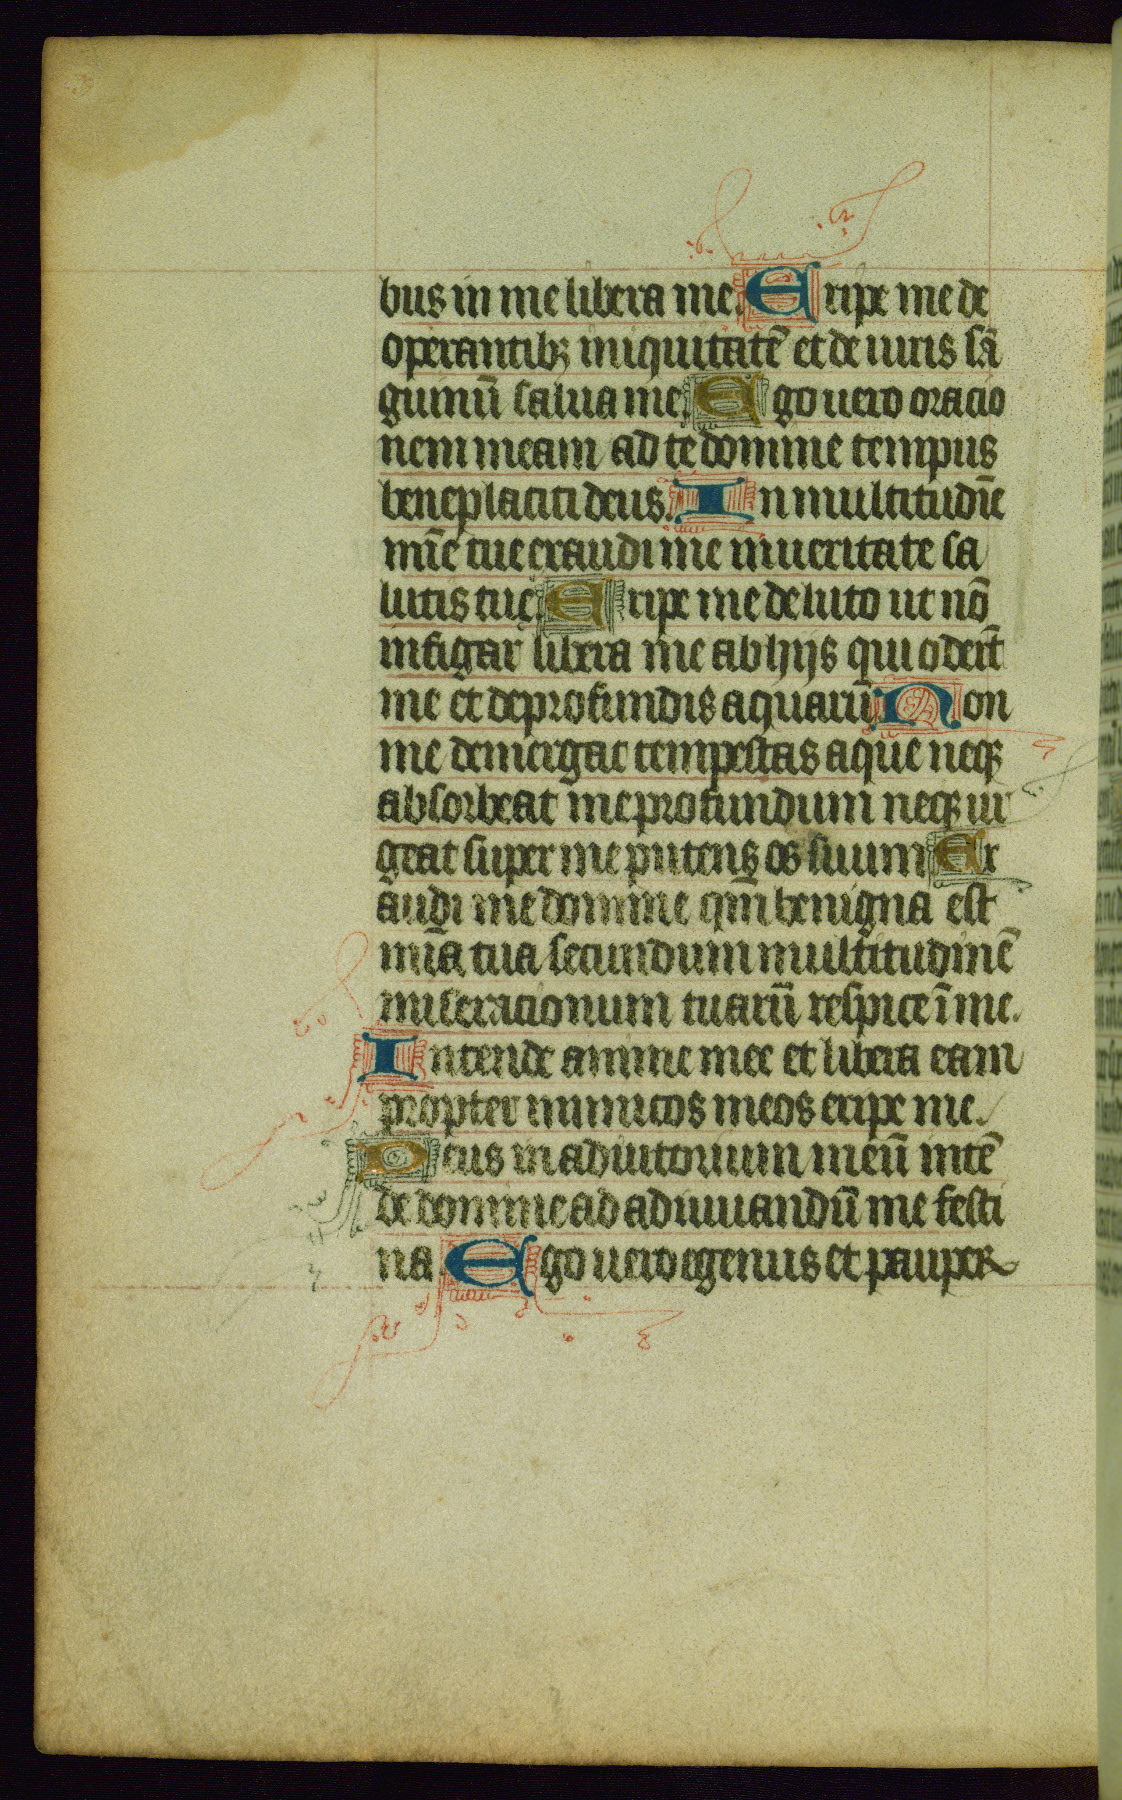 bus in me libera me. Eripe me de
operantibꝫ iniquitatē et de uiris sā
guinū salua me. Ego uero oracio
nem meam ad te domine tempus
beneplaciti deus. In multitudīe
mīe tue exaudi me in ueritate sa
lutis tue. Eripe me de luto ut nō
infigar libera me ab hijs qui oderūt
me et de profundis aquarū. Non
me demergat tempestas aque neqꝫ
absorbeat me profundum neqꝫ ur
geat super me puteus os suum Ex
audi me domine qm̄ benigna est
mīa tua secundum multitudinē
miseracionum tuarū respice ī me.
Intende anime mee et libera eam
propter inimicos meos eripe me.
Deus in adiutorium meū intē
de domine ad adiuuandū me festi
na Ego uero egenus et pauper